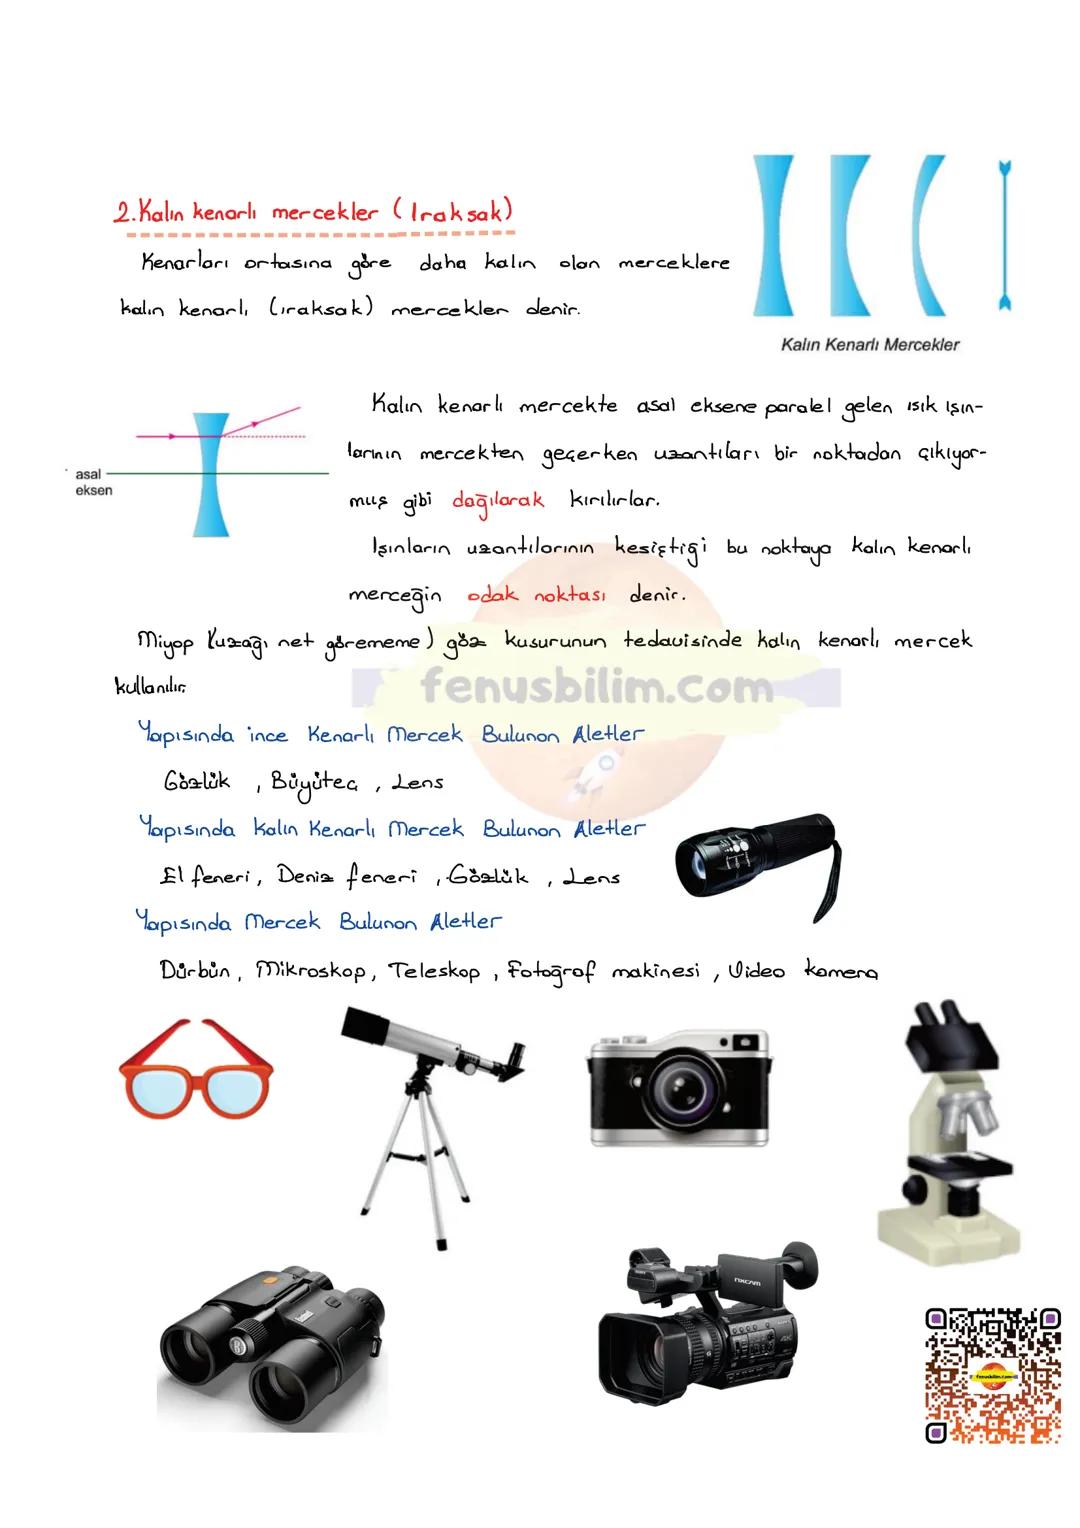 2.Kalın kenarlı mercekler (Iraksak)
Kenarları ortasına göre daha kalın olan merceklere
kalın kenarlı (ıraksak) mercekler denir.
Kalın Kenarlı Mercekler
Kalın kenarlı mercekte asal eksene paralel gelen ışık ışın-
larının mercekten geçerken uzantıları bir noktadan çıkıyor-
muş gibi dağılarak kırılırlar.
asal
eksen
Işınların uzantılarının kesiştiği bu noktaya kalın kenarlı
merceğin odak noktası denir.
Miyop (uzağı net görememe) göz kusurunun tedavisinde kalın kenarlı mercek
kullanılır.
fenusbilim.com
Yapısında ince Kenarlı Mercek Bulunan Aletler
Gözlük, Büyüteç, Lens
Yapısında Kalın Kenarlı Mercek Bulunan Aletler
El feneri, Deniz feneri, Gözlük, Lens
Yapısında Mercek Bulunan Aletler
Dürbün, Mikroskop, Teleskop, Fotoğraf makinesi, Video kamera
NXCAM
4K
fenusbilim.com